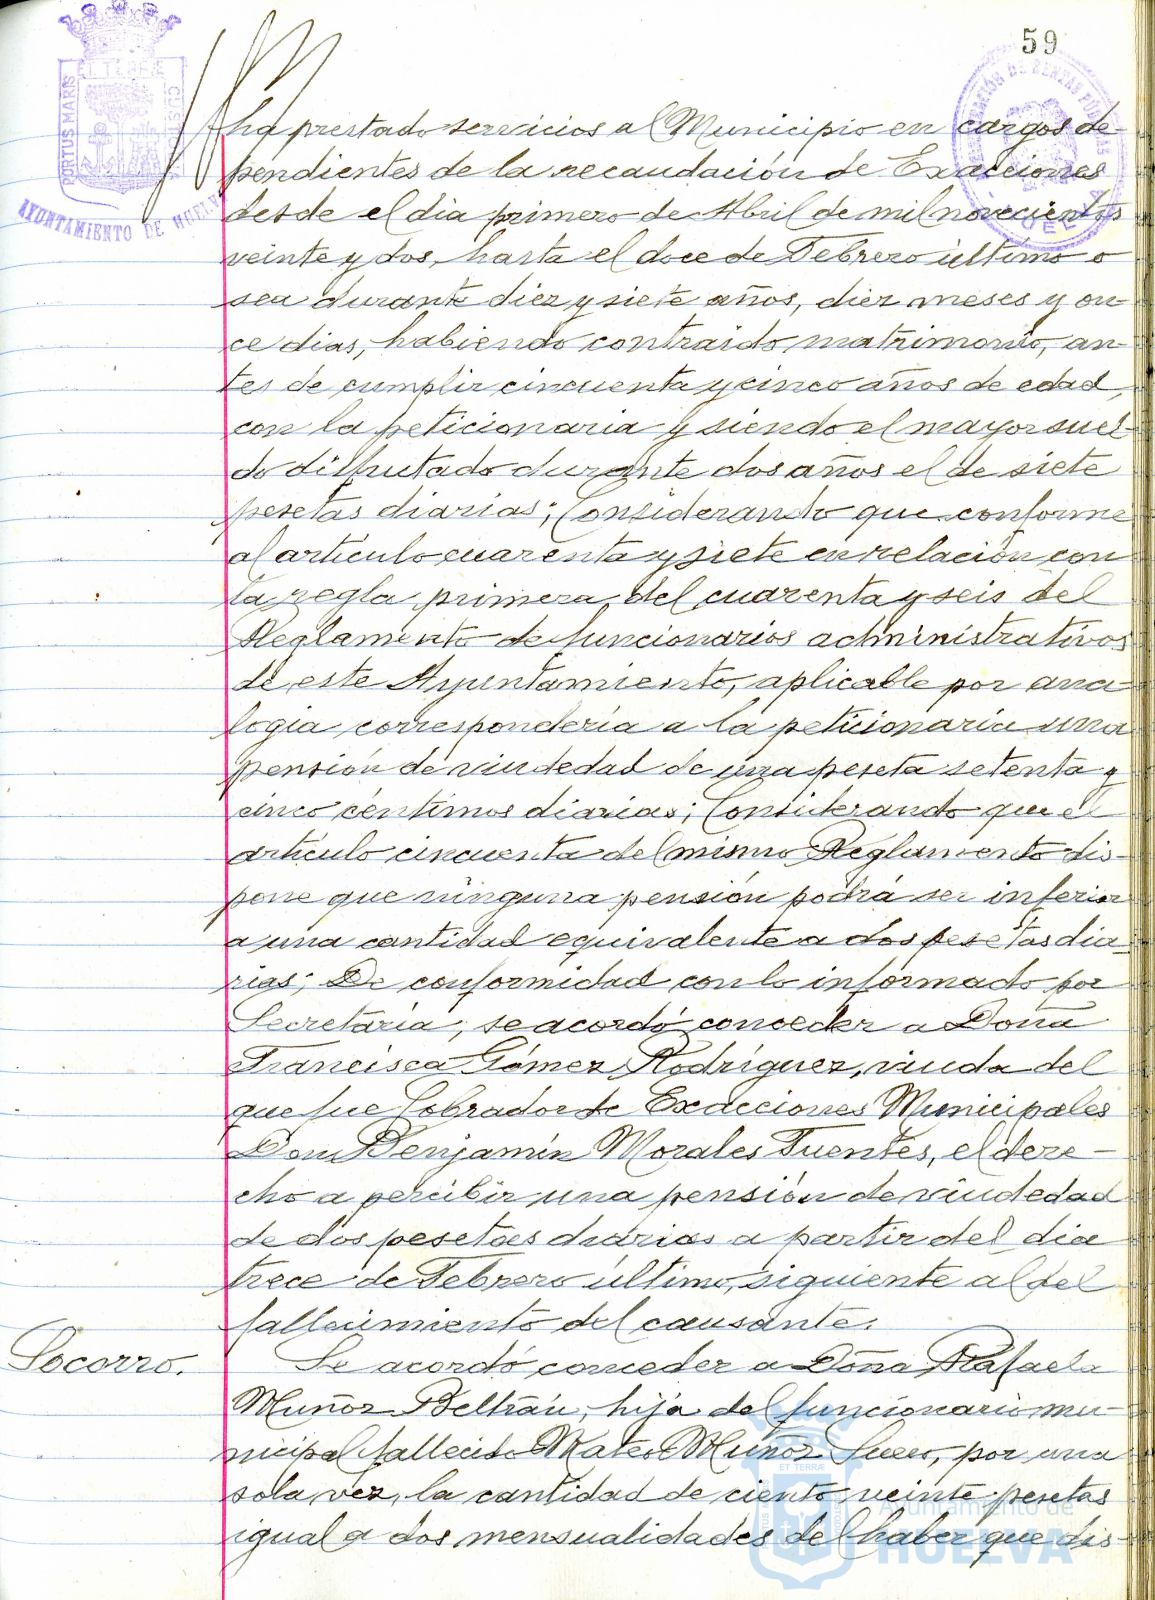 59
PORTUS MARIS ET TERRÆ CUSTODIA
AYUNTAMIENTO DE HUELVA
ha prestado servicios al Municipio en cargos de-
pendientes de la recaudación de Exacciones
desde el dia primero de Abril de mil novecientos
veinte y dos, hasta el doce de Febrero último o
sea durante diez y siete años, diez meses y on-
ce dias, habiendo contraido matrimonio, an-
tes de cumplir cincuenta y cinco años de edad,
con la peticionaria y siendo el mayor suel-
do disfrutado durante dos años el de siete
pesetas diarias; Considerando que conforme
al artículo cuarenta y siete en relación con
la regla primera del cuarenta y seis del
Reglamento de funcionarios administrativos
de este Ayuntamiento, aplicable por ana-
logia correspondería a la peticionaria una
pensión de viudedad de una peseta setenta y
cinco céntimos diarias; Considerando que el
artículo cincuenta del mismo Reglamento dis-
pone que ninguna pensión podrá ser inferior
a una cantidad equivalente a dos pesetas dia-
rias; De conformidad con lo informado por
Secretaría, se acordó conceder a Doña
Francisca Gómez Rodríguez, viuda del
que fue Cobrador de Exacciones Municipales
Don Benjamín Morales Fuentes, el dere-
cho a percibir una pensión de viudedad
de dos pesetas diarias a partir del dia
trece de Febrero último, siguiente al del
fallecimiento del causante.
Socorro.
Se acordó conceder a Doña Rafaela
Muñoz Beltrán, hija del funcionario mu-
nicipal fallecido Mateo Muñoz, por una
sola vez, la cantidad de ciento veinte pesetas
igual a dos mensualidades del haber que dis-
Ayuntamiento de
HUELVA